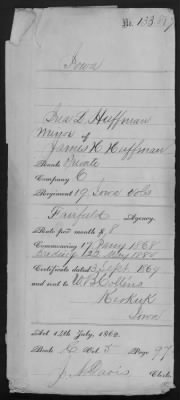 No. 133.817
Iowa
Ira L Huffman
Minor of
James H Huffman
Rank Private
Company C
Regiment 19 Iowa Vols
Fairfield Agency.
Rate per month $ 8
Commencing 17 Jany 1868
Ending 22 May 1880
Certificate dated 3 Sept 1869
and sent to W B Collins
Keokuk
Iowa
Act 14th July, 1862.
Book C Vol. 5 Page 97
J. Davis Clerk.